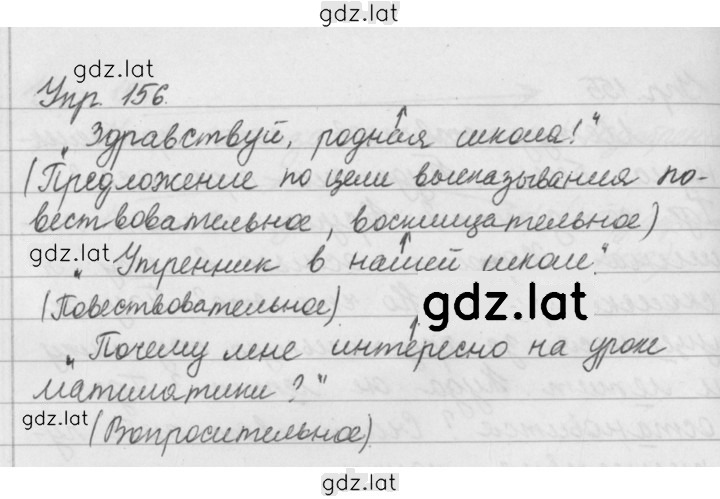 gdz.lat
gdz.lat
Упр. 156.
„Здравствуй, родная школа!"
(Предложение по цели высказывания по-
вествовательное, восклицательное)
gdz.lat
„Утренник в нашей школе".
(Повествовательное)
gdz.lat
„Почему мне интересно на уроке
математики?"
gdz.lat
(Вопросительное)
gdz.lat